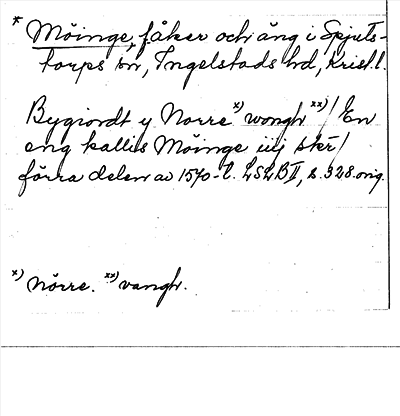 * Möinge, fåker och äng i Spjuts-
torps sn, Ingelstads hd, Krist. l.
Bygiordt y Norre x) wongh xx)/ En
eng kallis Möinge iiij sker/
förra delen av 1570-t. LSLB II, s. 328. orig.
x) Nörre. xx) vangh.